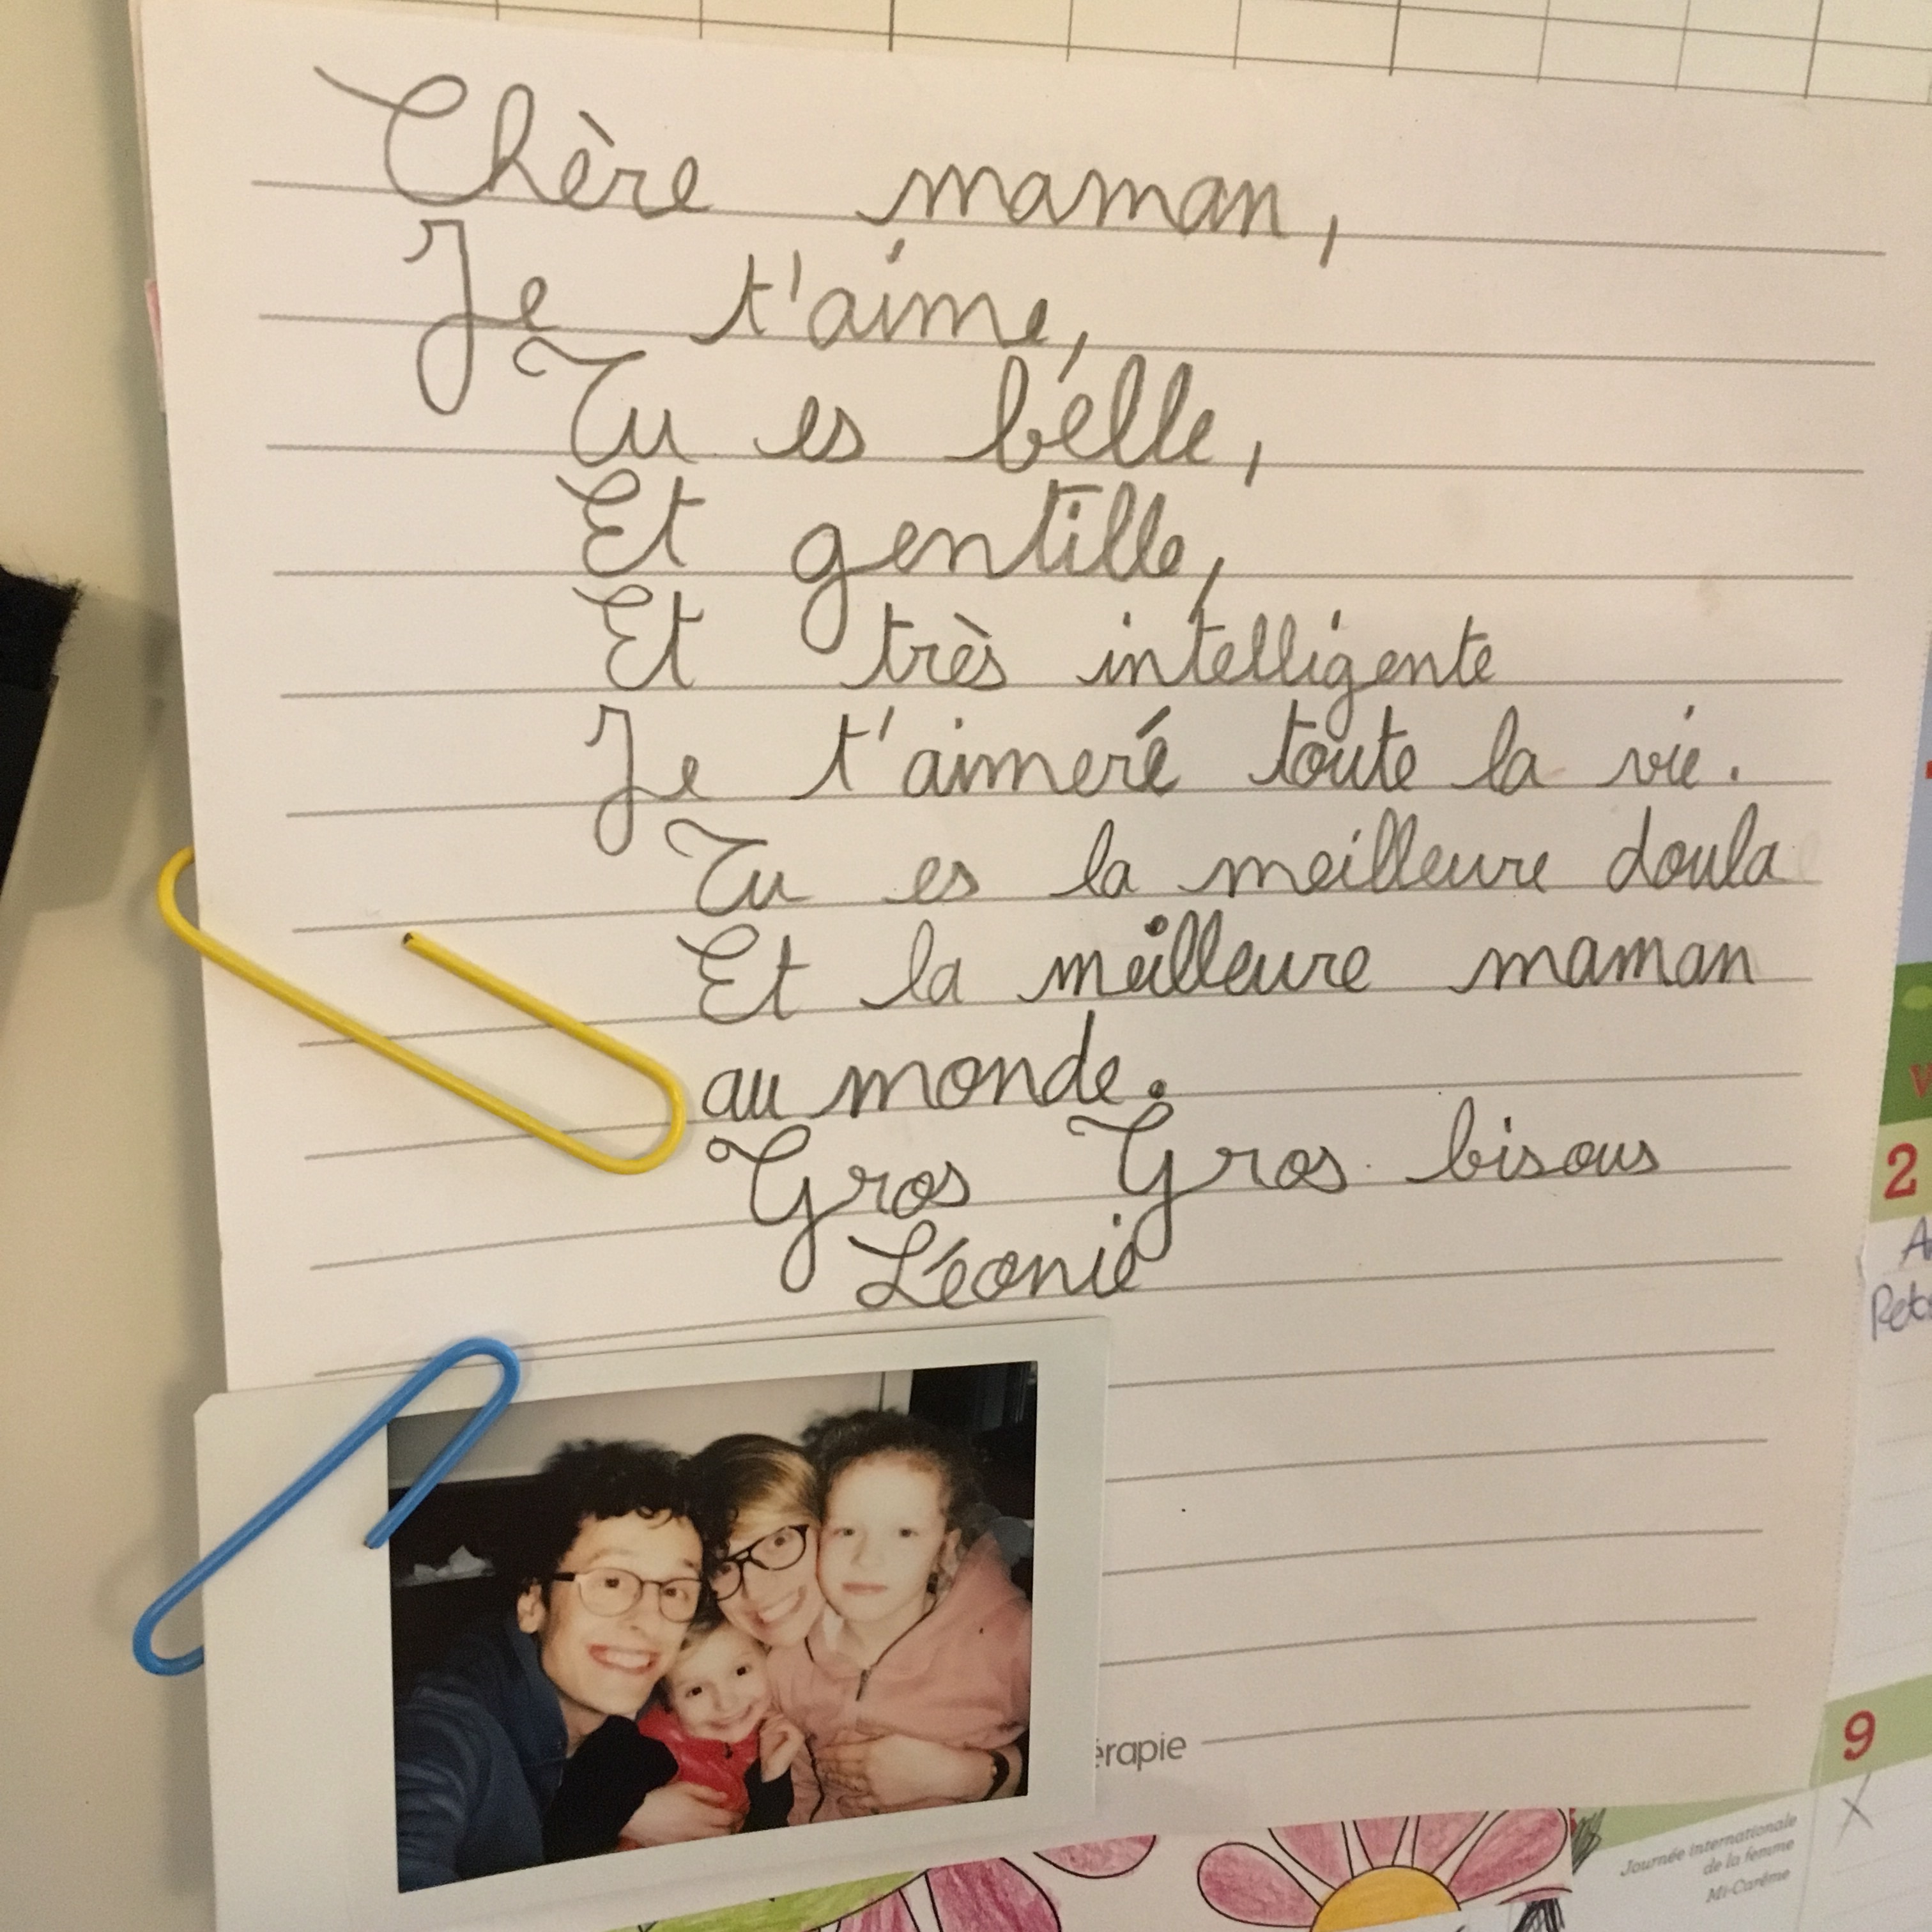 Chère maman,
Je t'aime,
Tu es belle,
Et gentille,
Et très intelligente
Je t'aimeré toute la vie.
Tu es la meilleure doula
Et la meilleure maman
au monde.
Gros Gros bisous
Léonie
érapie
2
9
Journée internationale
de la femme
Mi-Carême